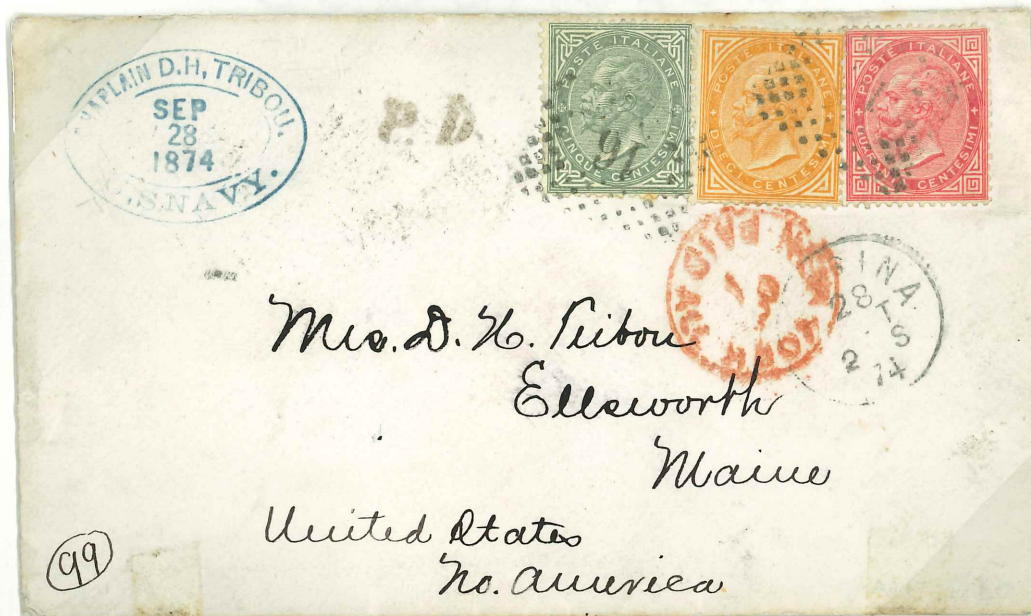 CHAPLAIN D.H, TRIBOU.
SEP
28
1874
U.S.NAVY.
P.D.
POSTE ITALIANE
CINQUE CENTESIMI
16
POSTE ITALIANE
DIECI CENTESIMI
POSTE ITALIANE
CENTESIMI
NEW YORK
PAID ALL
28
S
2
74
Mrs. D. H. Tribou
Ellsworth
Maine
United States
No. America
99